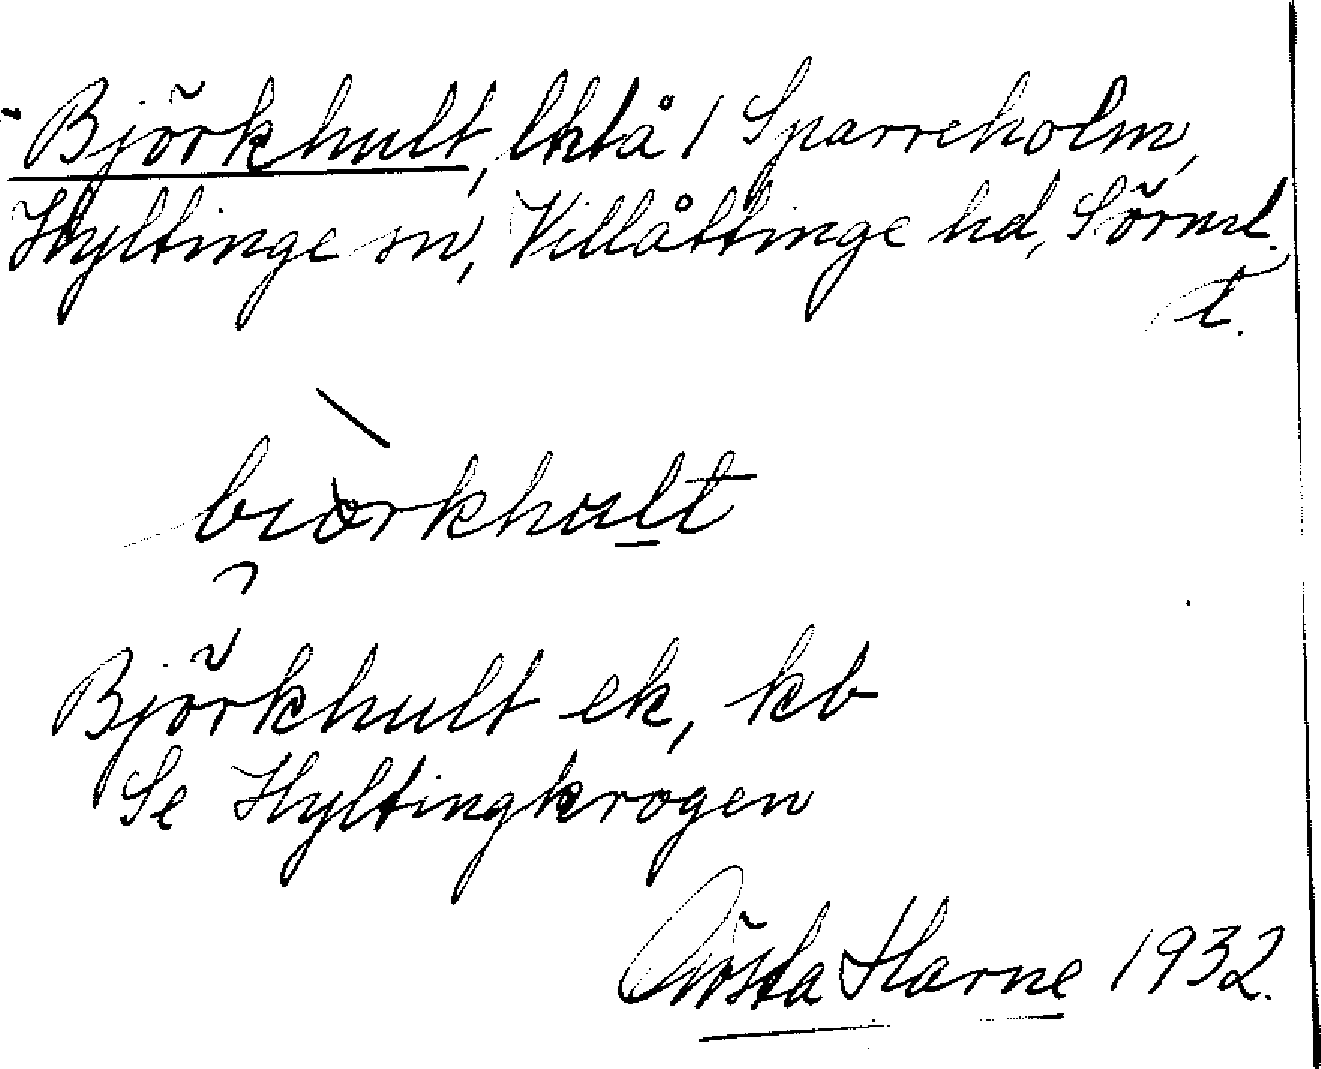 Björkhult, lhtå / Sparreholm,
Hyltinge sn, Villåttinge hd, Sörml.
t.
biòrkhult
Björkhult ek, kb
Se Hyltingkrogen
Gösta Harne 1932.